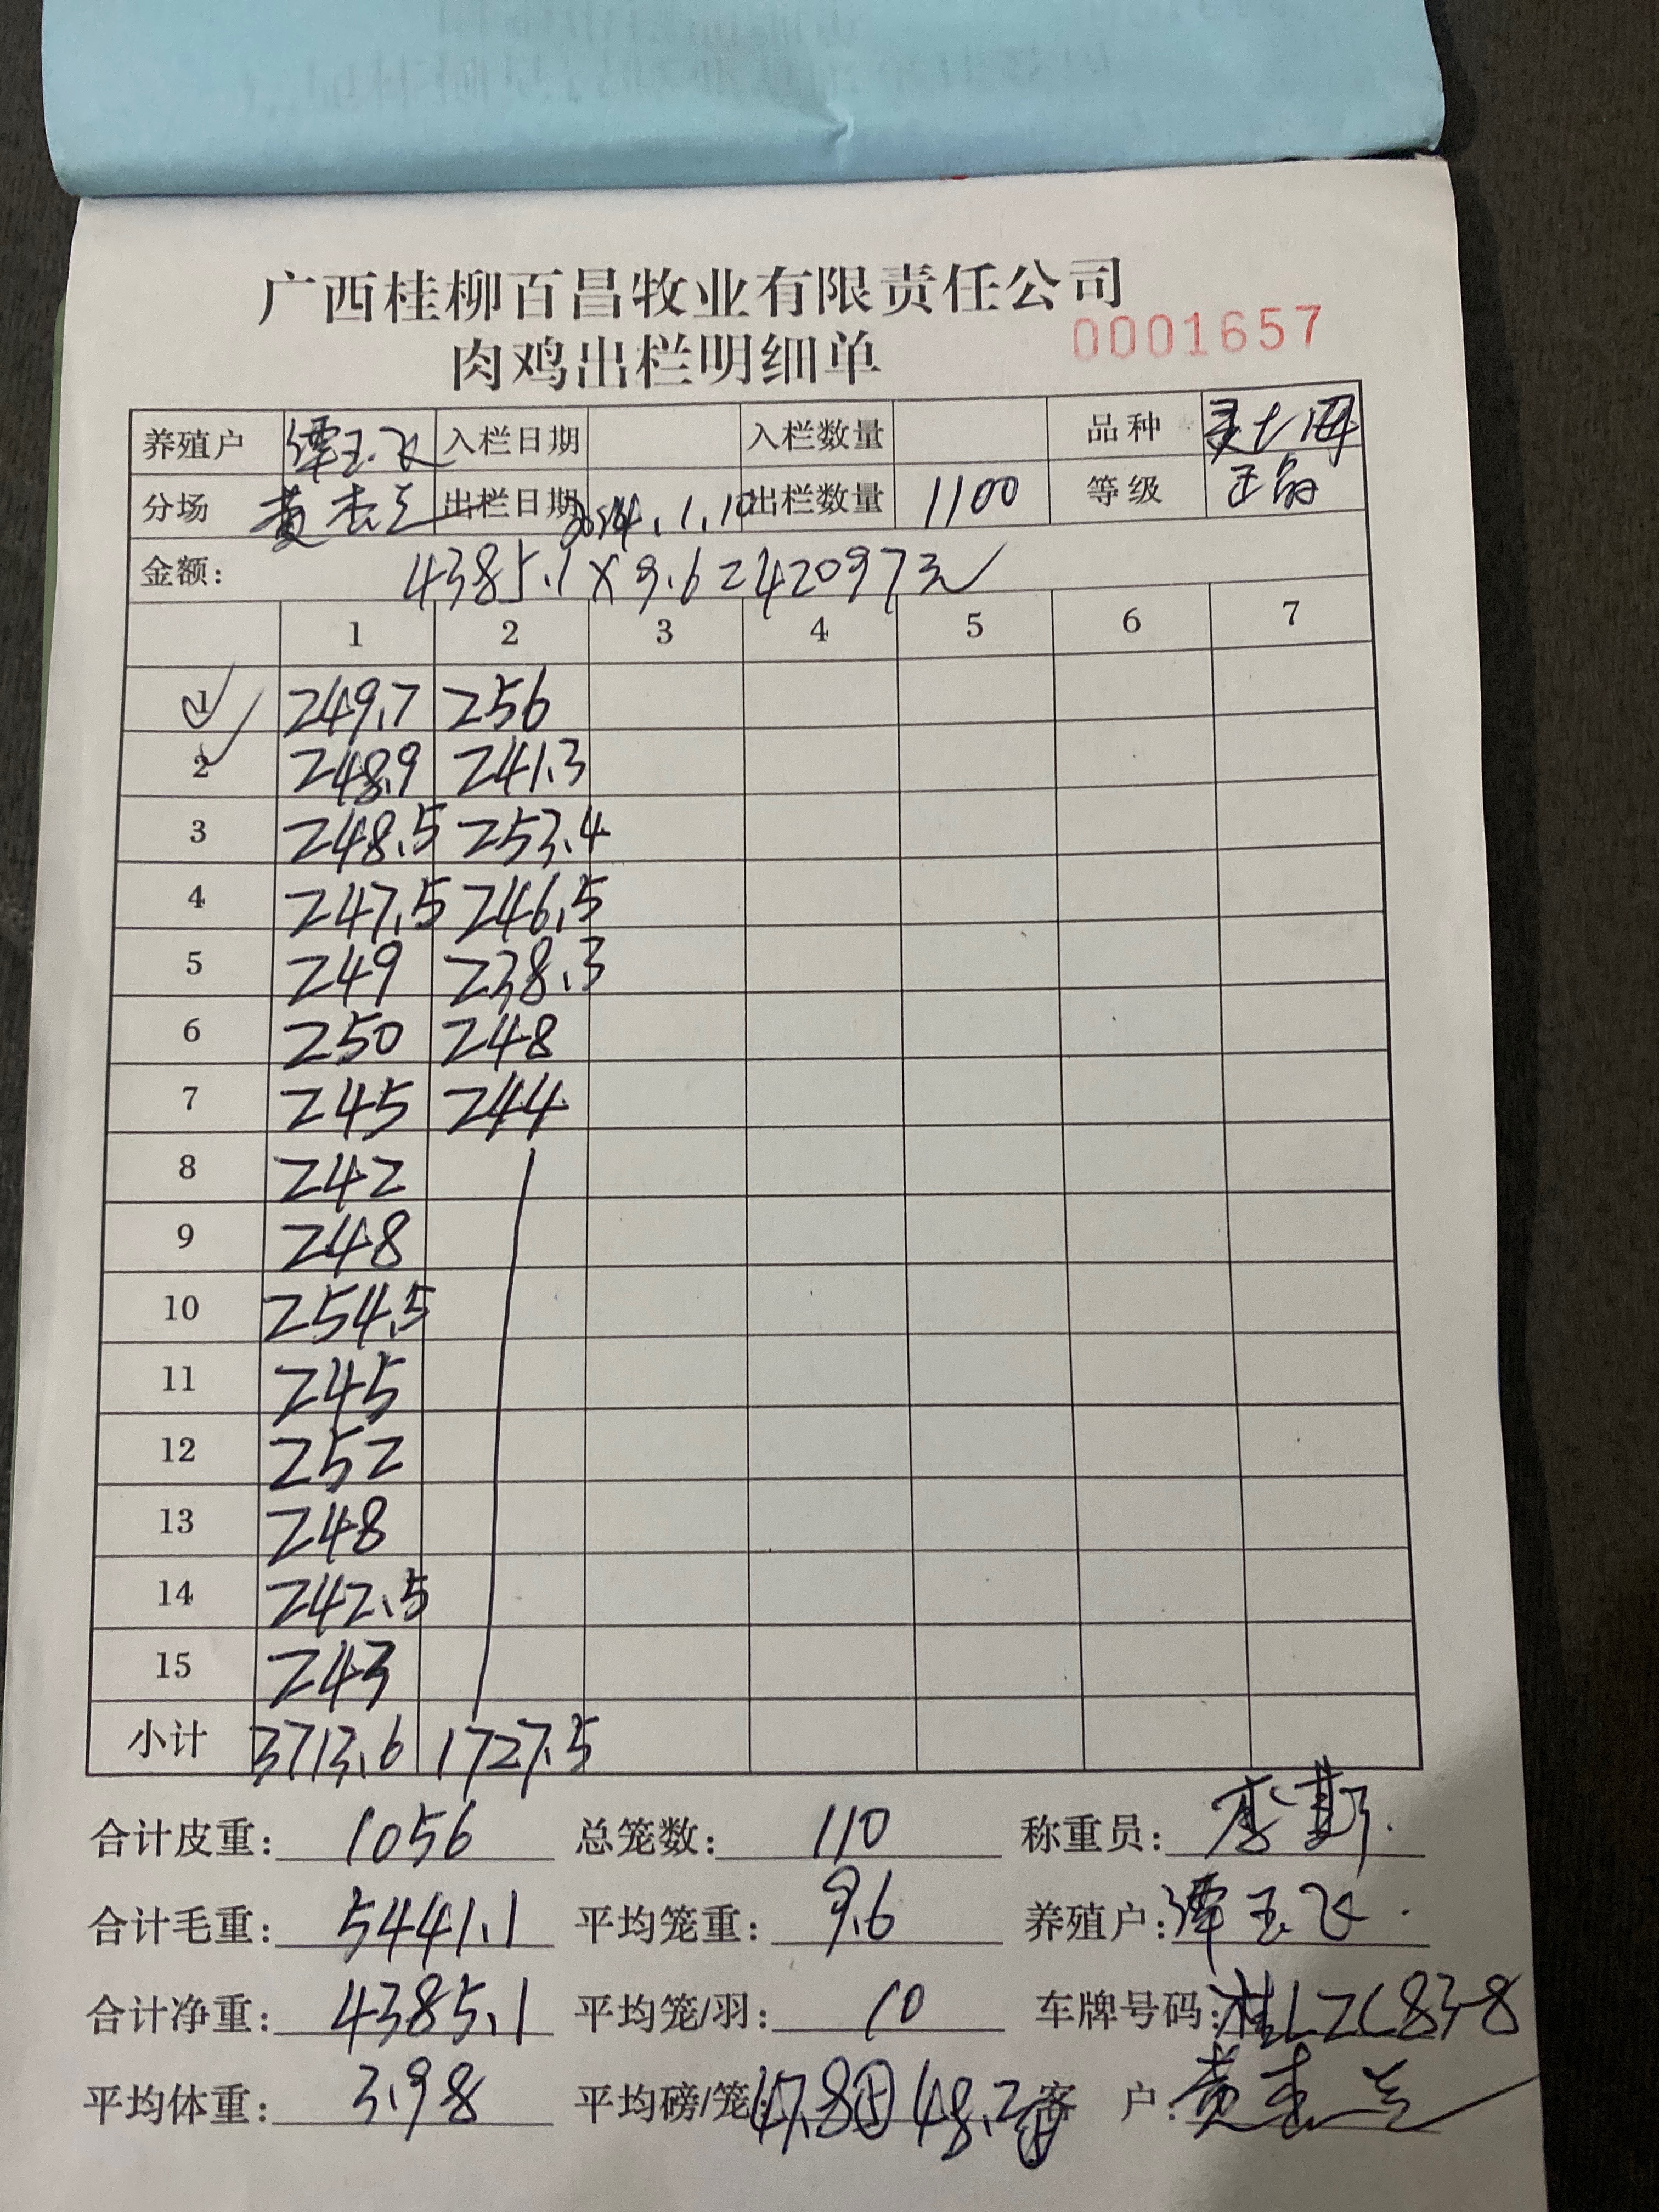 广西桂柳百昌牧业有限责任公司
肉鸡出栏明细单 0001657
养殖户 谭玉飞 入栏日期 入栏数量 品种
分场 出栏日期 出栏数量 1100 等级 正品
金额: 4385.1×9.6=42097元
1 2 3 4 5 6 7
1 249.7 256
2 248.9 241.3
3 248.5 253.4
4 247.5 246.5
5 249 238.3
6 250 248
7 245 244
8 242
9 248
10 254.5
11 245
12 252
13 248
14 242.5
15 243
小计 3713.6 1727.5
合计皮重: 1056 总笼数: 110 称重员:
合计毛重: 5441.1 平均笼重: 9.6 养殖户: 谭玉飞
合计净重: 4385.1 平均笼/羽: 10 车牌号码:
平均体重: 3.98 平均磅/笼: 47.8 48.2 客 户: